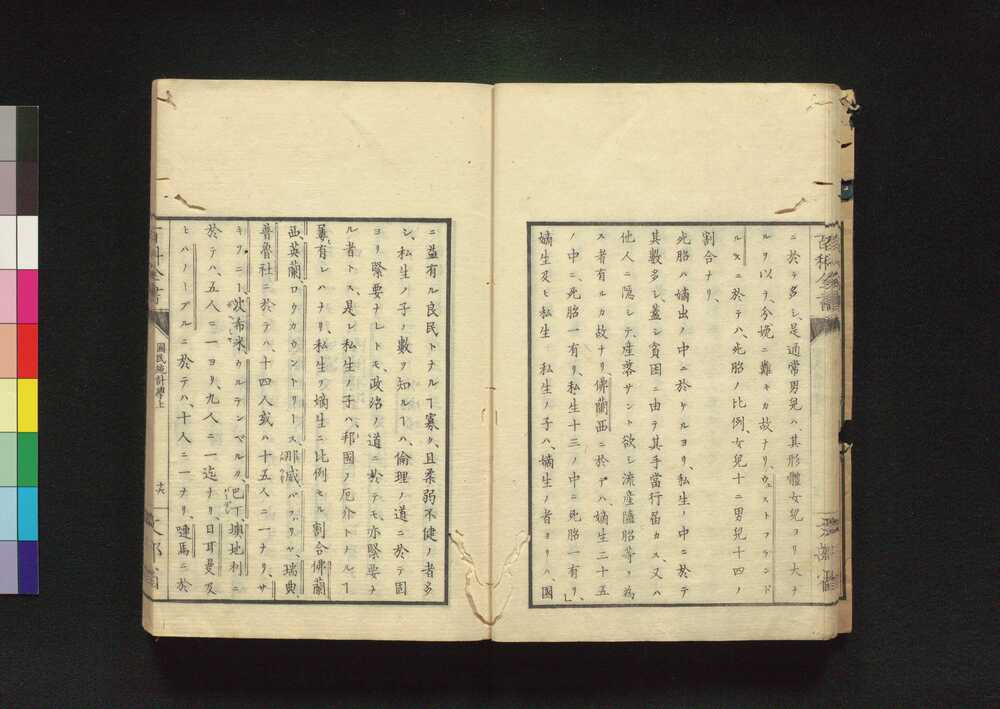 ニ於テ多シ、是通常男兒ハ、其形體女兒ヨリ大ナ
ルヲ以テ、今娩ニ難キカ故ナリ、ウェストフランド
ルスニ於テハ、死胎ノ比例、女兒十ニ男兒十四ノ
割合ナリ、
死胎ハ嫡出ノ中ニ於ケルヨリ、私生ノ中ニ於テ
其數多シ、蓋シ貧困ニ由テ其手當行届カス、又ハ
他人ニ隱シテ、産落サント欲シ流産墮胎等ヲ為
ス者有ルカ故ナリ、佛蘭西ニ於テハ、嫡生二十五
ノ中ニ、死胎一有リ、私生十三ノ中ニ死胎一有リ、
嫡生及ヒ私生 私生ノ子ハ、嫡生ノ者ヨリハ、國
ニ益有ル良民トナルヿ寡ク、且柔弱不健ノ者多
シ、私生ノ子ノ數ヲ知ルヿハ、倫理ノ道ニ於テ固
ヨリ緊要ナレトモ、政治ノ道ニ於テモ、亦緊要ナ
ル者トス、是レ私生ノ子ハ、邦國ノ厄介トナルヿ
屢有レハナリ、私生ヲ嫡生ニ比例セル割合佛蘭
西、英蘭、ロウカウントリース、那威、バワリヤ、瑞典、
普魯社ニ於テハ、十四人或ハ十五人ニ一ナリ、サ
キソニー、次布米、ウルテンベルク、巴丁、墺地利ニ
於テハ、五人ニ一ヨリ、九人ニ一迄ナリ、日耳曼及
ヒハノーブルニ於テハ、十人ニ一ナリ、嗹馬ニ於
百科全書
國民統計學上
十六
文部省